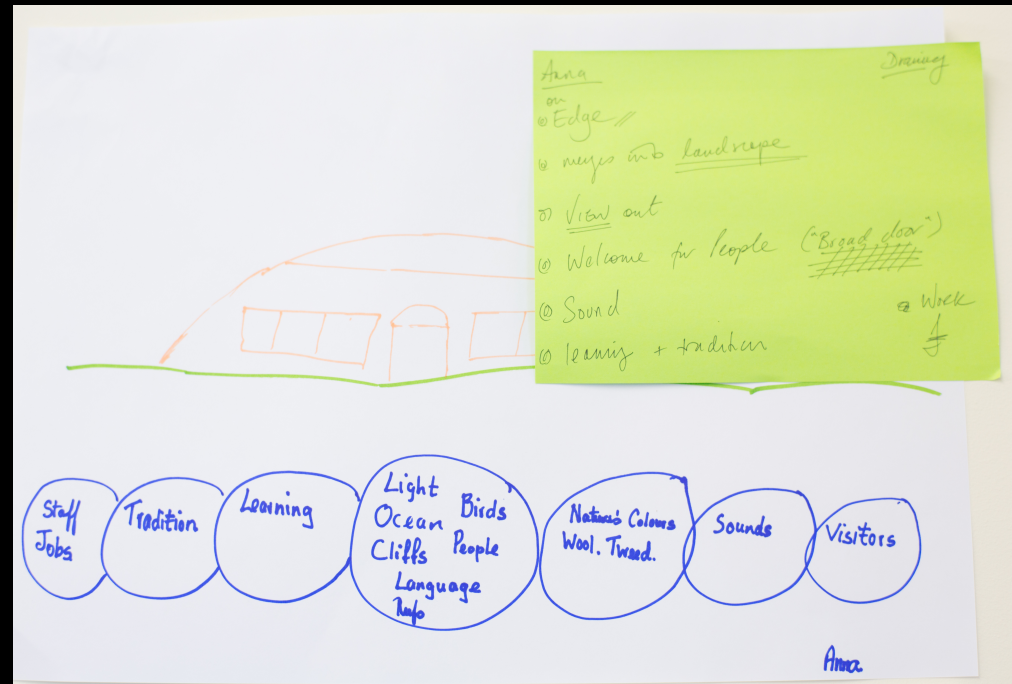 Anna
Drawing
on
Edge //
merges into landscape
View out
Welcome for People ("Broad door")
Sound
Work
learning + tradition
Staff
Jobs
Tradition
Learning
Light
Birds
Ocean
Cliffs
People
Language
Nature's Colours
Wool. Tweed.
Sounds
Visitors
Anna